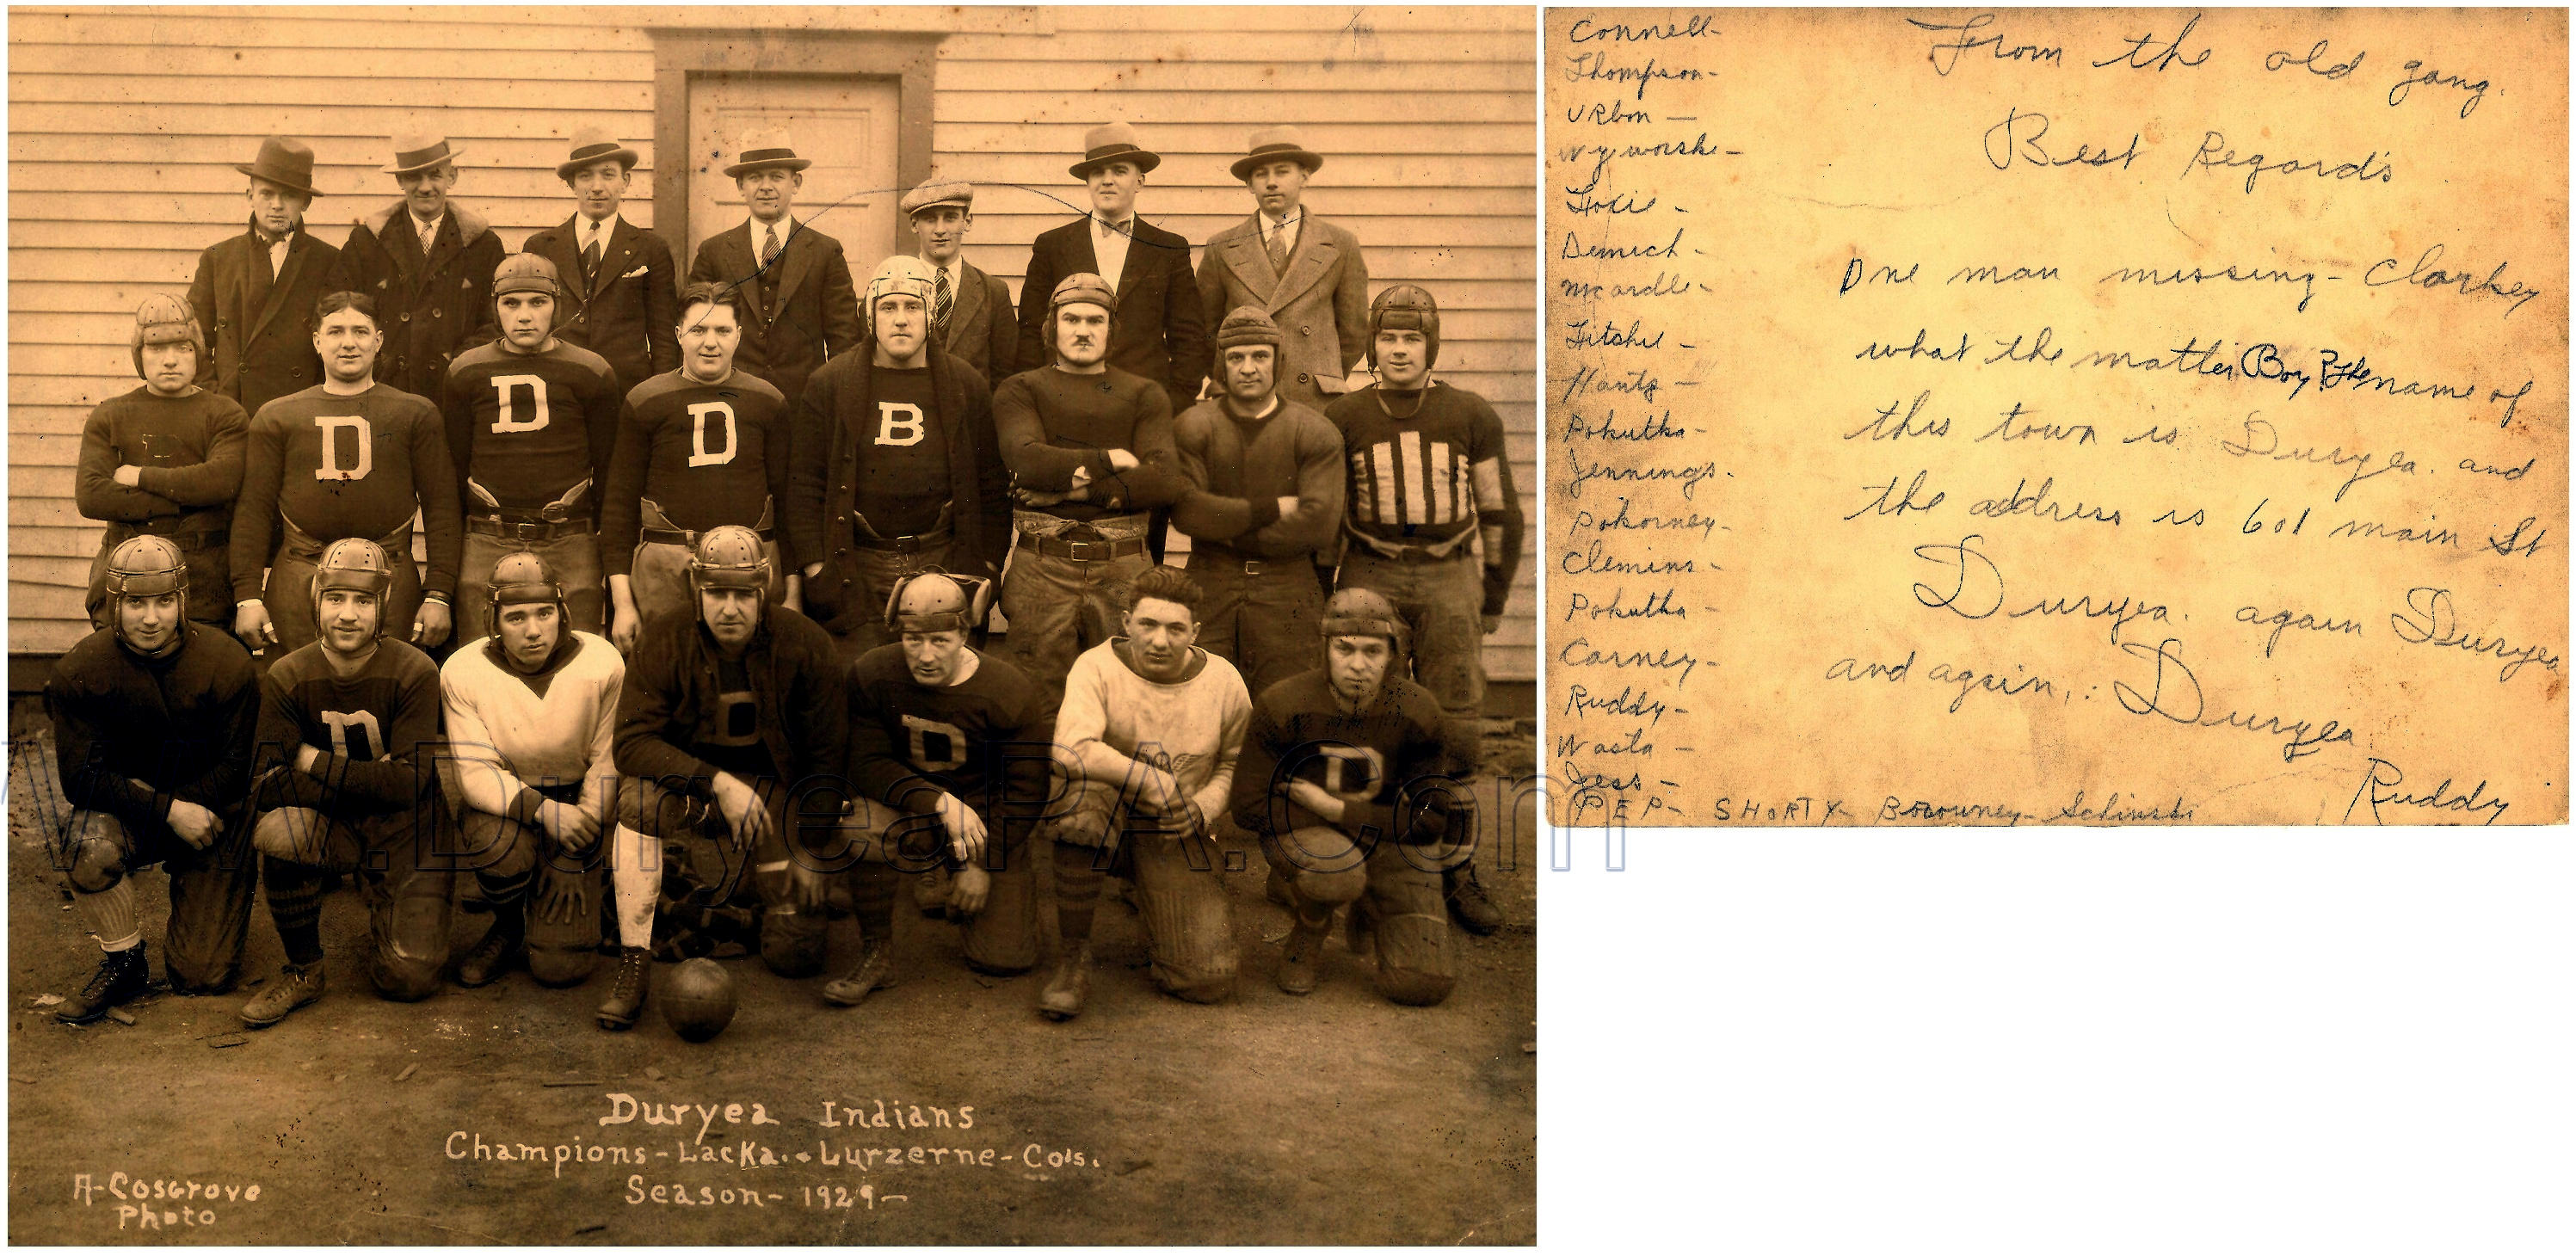 D
D
D
B
D
D
D
D
WWW.DuryeaPA.Com
Duryea Indians
Champions - Lacka. - Lurzerne - Cols.
Season - 1929 -
A-Cosgrove
Photo
Connell -
Thompson -
Urbon -
Hoxie -
Demich -
McArdle -
Hantz -
Pokutka -
Jennings -
Pokorney -
Clemins -
Pokutka -
Carney -
Ruddy -
Wasta -
Jess -
PEP - SHORTY - Schinski
From the old gang.
Best Regards
One man missing - Clarkey
what the matter Boy? The name of
this town is Duryea. and
the address is 601 main St
Duryea. again Duryea
and again,: Duryea
Ruddy